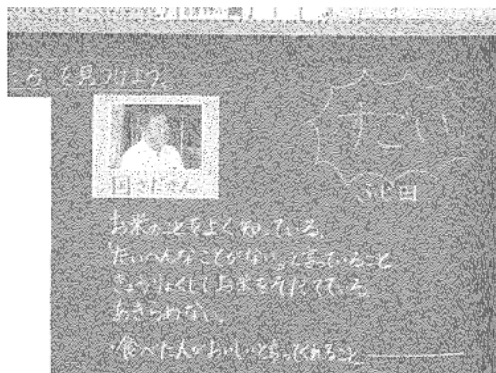 ろ を見つけよう
国さださん
たい
ふじ田
お米のことをよく知っている。
たいへんなことがないと言っていること
きょう力してお米をそだてている。
あきらめない。
・食べた人がおいしいと言ってくれること